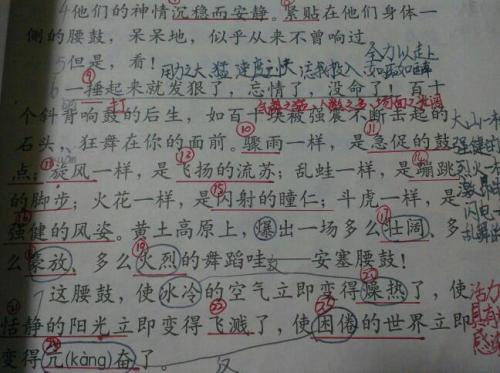 4他们的神情沉稳而安静。紧贴在他们身体一
侧的腰鼓，呆呆地，似乎从来不曾响过。
5但是，看！
全力以赴
用力之大、猛、速度之快
如痴如醉
6一捶起来就发狠了，忘情了，没命了！百十
打
个斜背响鼓的后生，如百十块被强震不断击起的
石头，狂舞在你的面前。骤雨一样，是急促的鼓
点；旋风一样，是飞扬的流苏；乱蛙一样，是蹦跳
的脚步；火花一样，是闪射的瞳仁；斗虎一样，是
强健的风姿。黄土高原上，爆出一场多么壮阔、多
么豪放、多么火烈的舞蹈哇——安塞腰鼓！
7这腰鼓，使冰冷的空气立即变得燥热了，使
恬静的阳光立即变得飞溅了，使困倦的世界立即
变得亢(kàng)奋了。
反
活力